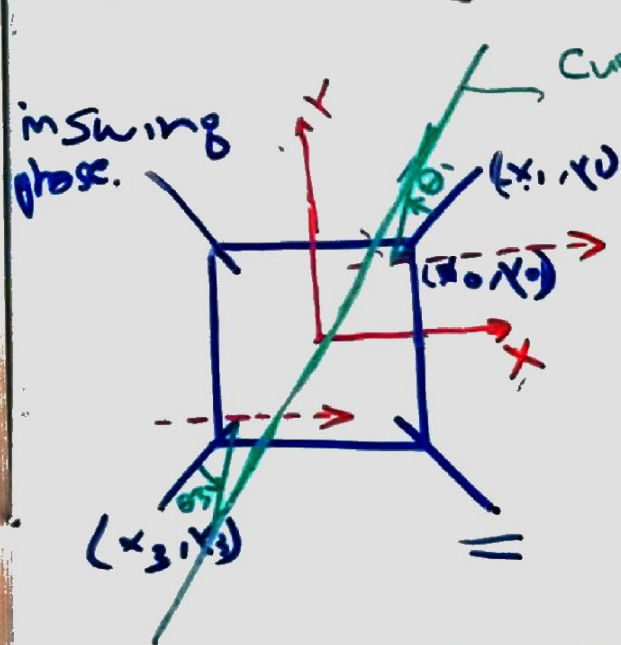 Y
in swing
phase.
θ
(x₁, y₁)
(x₀, y₀)
X
θ3
(x₃, y₃)